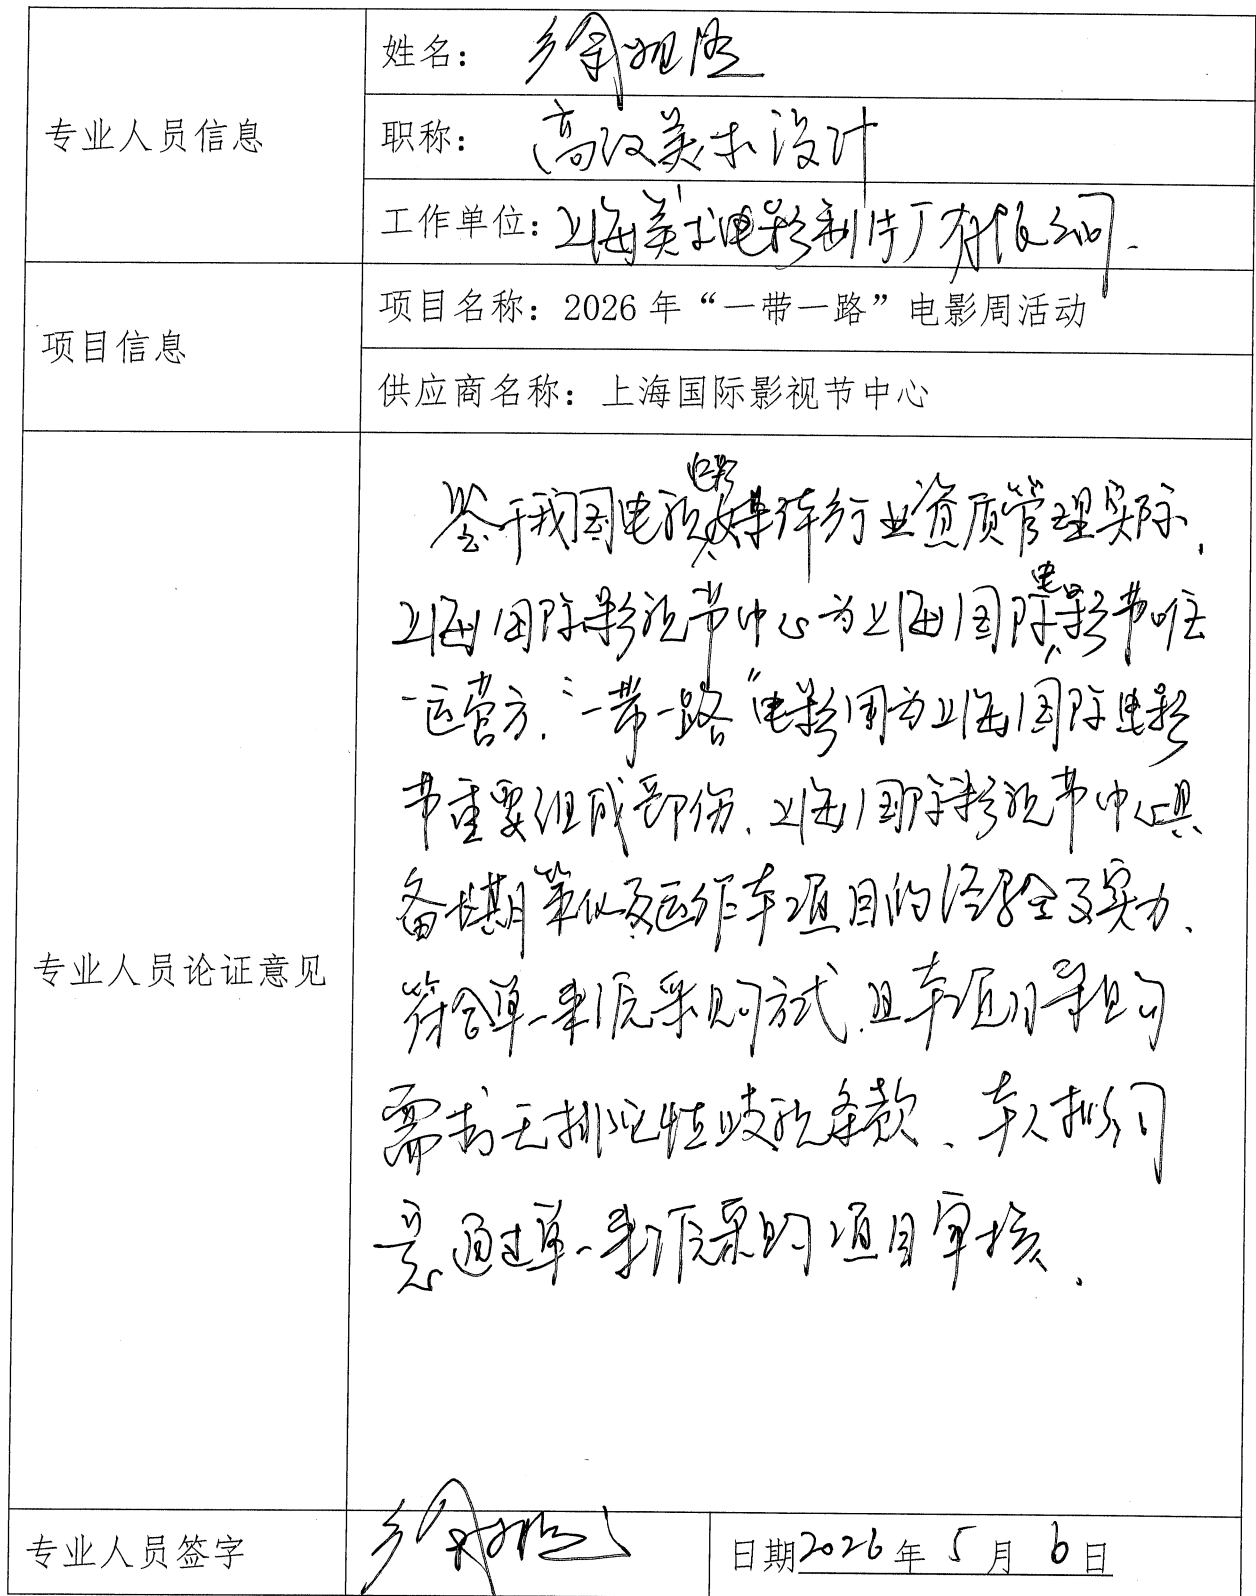 专业人员信息
姓名：徐
职称：高级美术设计
工作单位：上海美术电影制片厂有限公司.
项目信息
项目名称：2026年“一带一路”电影周活动
供应商名称：上海国际影视节中心
专业人员论证意见
鉴于我国电视电影媒体行业资质管理实际，
上海国际影视节中心为上海国际电影节唯
一运营方.“一带一路”电影周为上海国际电影
节重要组成部份、上海国际影视节中心具
备长期策仪及运作本项目的经验及实力、
符合单一来源采购方式.且本项目采购
需求无排他性歧视条款、本人拟同
意通过单一来源采购项目审核、
专业人员签字
徐
日期2026年5月6日